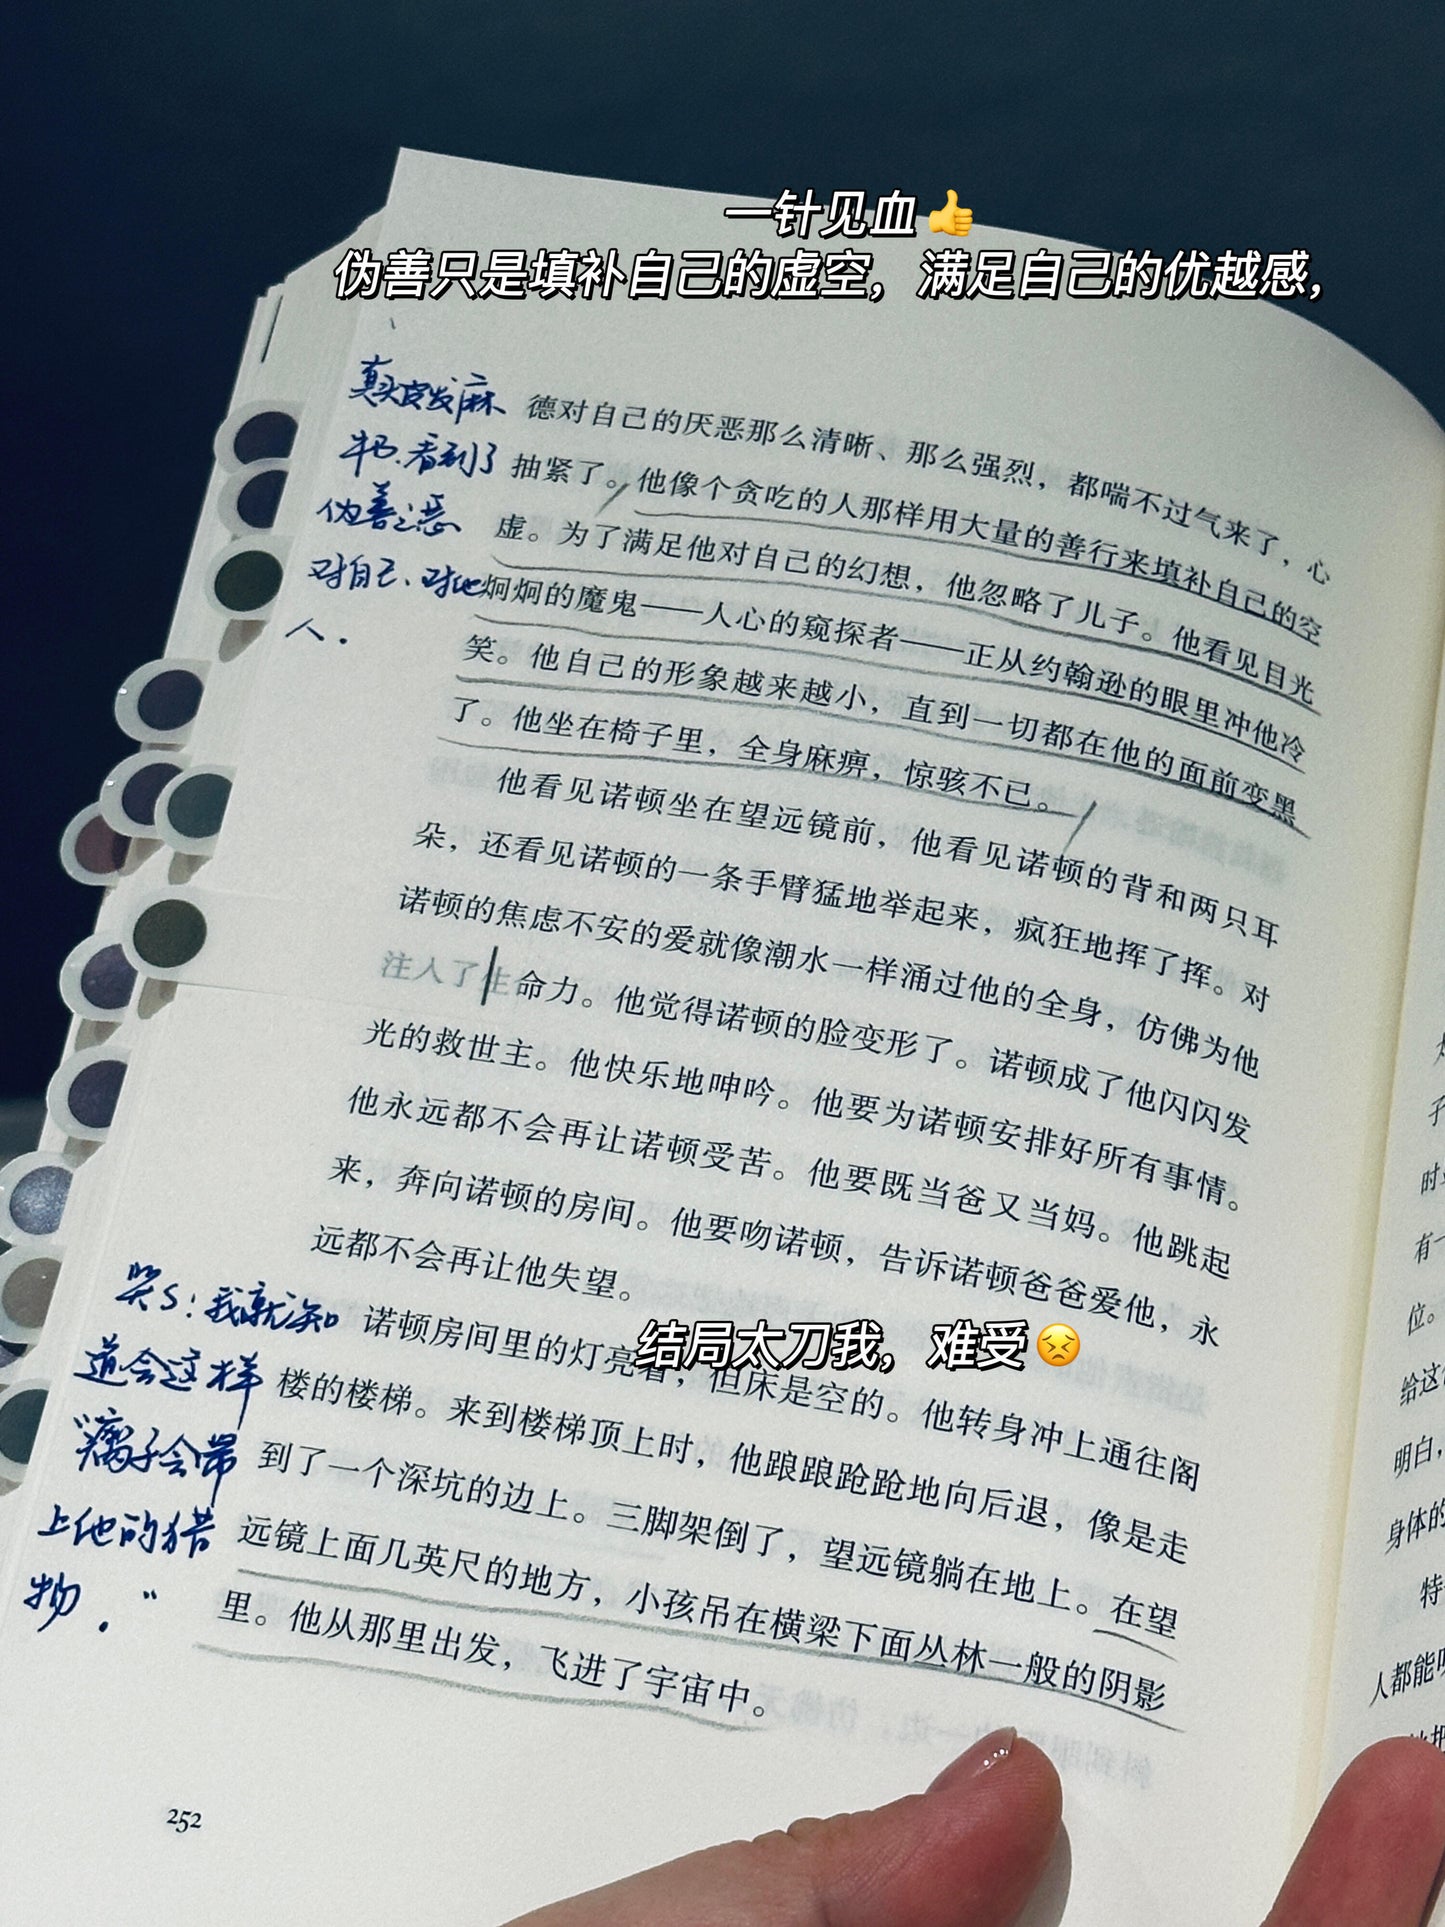 一针见血👍
伪善只是填补自己的虚空，满足自己的优越感，
真头皮发麻
牛, 看到了
伪善之恶
对自己、对他
人.
德对自己的厌恶那么清晰、那么强烈，都喘不过气来了，心
抽紧了。他像个贪吃的人那样用大量的善行来填补自己的空
虚。为了满足他对自己的幻想，他忽略了儿子。他看见目光
炯炯的魔鬼——人心的窥探者——正从约翰逊的眼里冲他冷
笑。他自己的形象越来越小，直到一切都在他的面前变黑
了。他坐在椅子里，全身麻痹，惊骇不已。
他看见诺顿坐在望远镜前，他看见诺顿的背和两只耳
朵，还看见诺顿的一条手臂猛地举起来，疯狂地挥了挥。对
诺顿的焦虑不安的爱就像潮水一样涌过他的全身，仿佛为他
注入了生命力。他觉得诺顿的脸变形了。诺顿成了他闪闪发
光的救世主。他快乐地呻吟。他要为诺顿安排好所有事情。
他永远都不会再让诺顿受苦。他要既当爸又当妈。他跳起
来，奔向诺顿的房间。他要吻诺顿，告诉诺顿爸爸爱他，永
远都不会再让他失望。
结局太刀我，难受😣
哭s：我就知
道会这样
“瘸子会带
上他的猎
物.”
诺顿房间里的灯亮着，但床是空的。他转身冲上通往阁
楼的楼梯。来到楼梯顶上时，他踉踉跄跄地向后退，像是走
到了一个深坑的边上。三脚架倒了，望远镜躺在地上。在望
远镜上面几英尺的地方，小孩吊在横梁下面丛林一般的阴影
里。他从那里出发，飞进了宇宙中。
252
时
有一
位。
给这
明白，
身体的
特
人都能